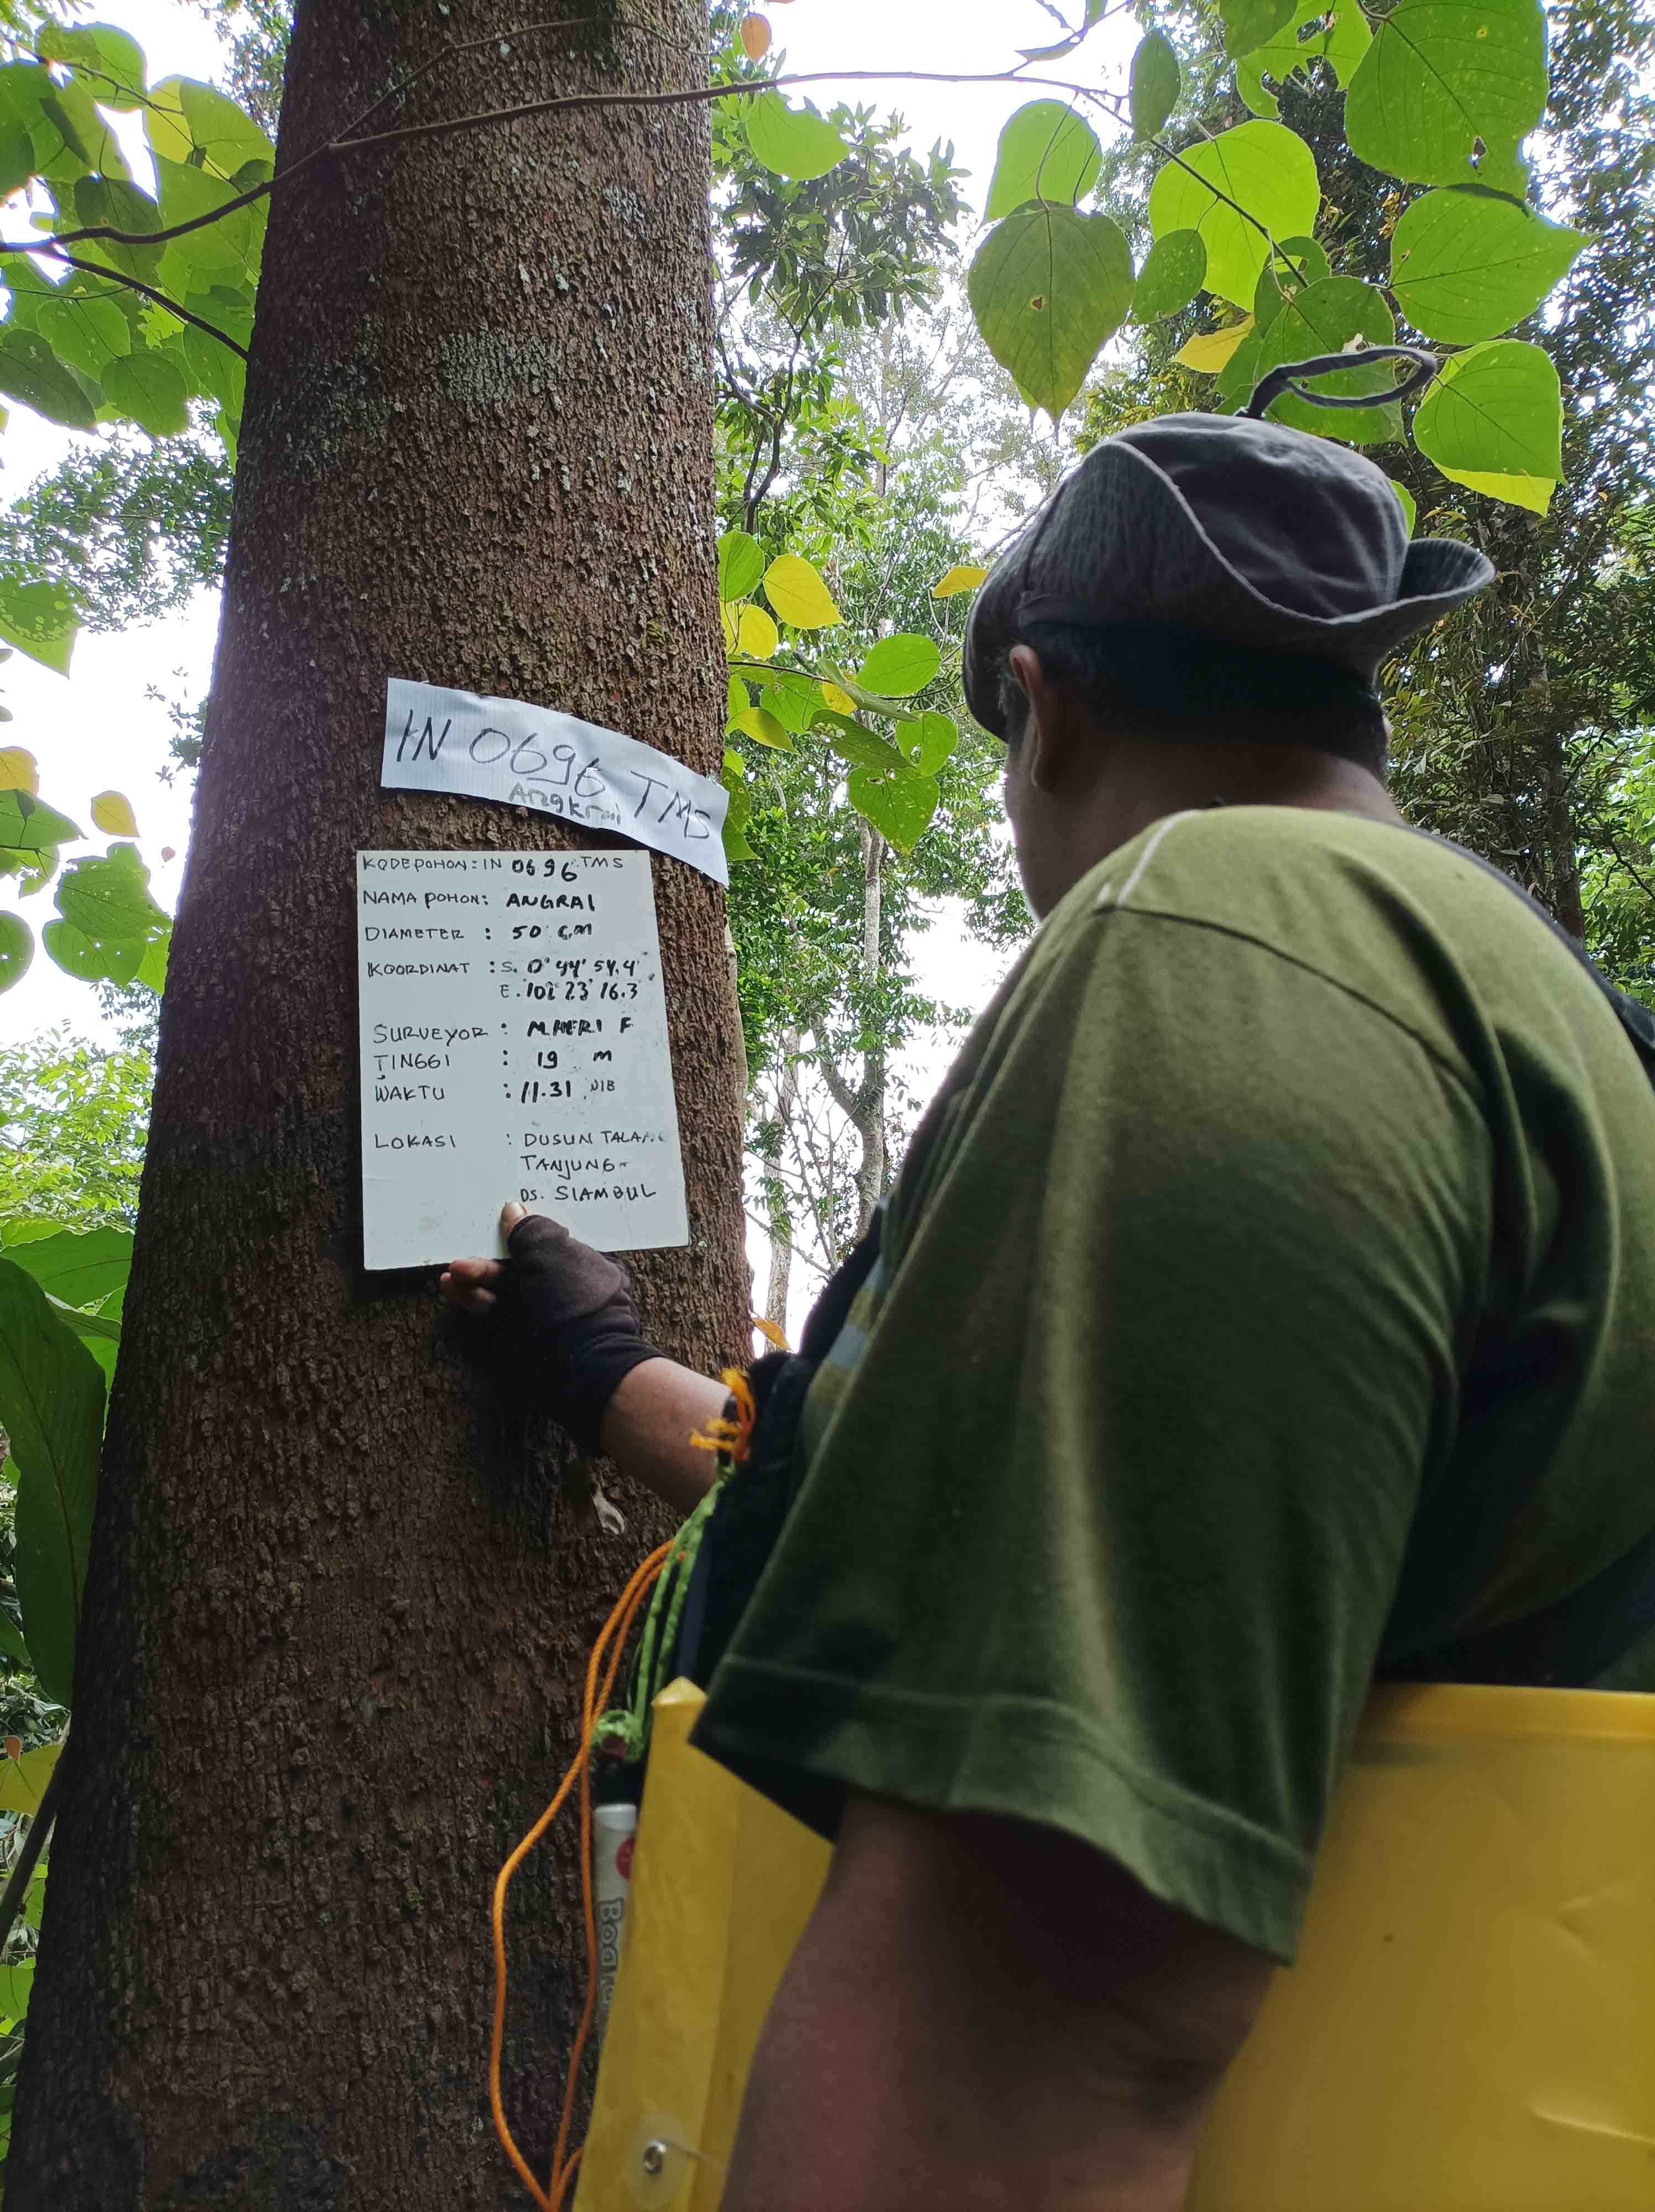 IN 0696 TMS
KODE POHON : IN 0696 TMS
NAMA POHON : ANGRAI
DIAMETER : 50 CM
KOORDINAT : S. 0° 44' 54.4"
E. 102° 23' 16.3"
SURVEYOR : MHERI F
TINGGI : 19 m
WAKTU : 11.31 WIB
LOKASI : DUSUN TALANG
TANJUNG-
DS. SIAMBUL